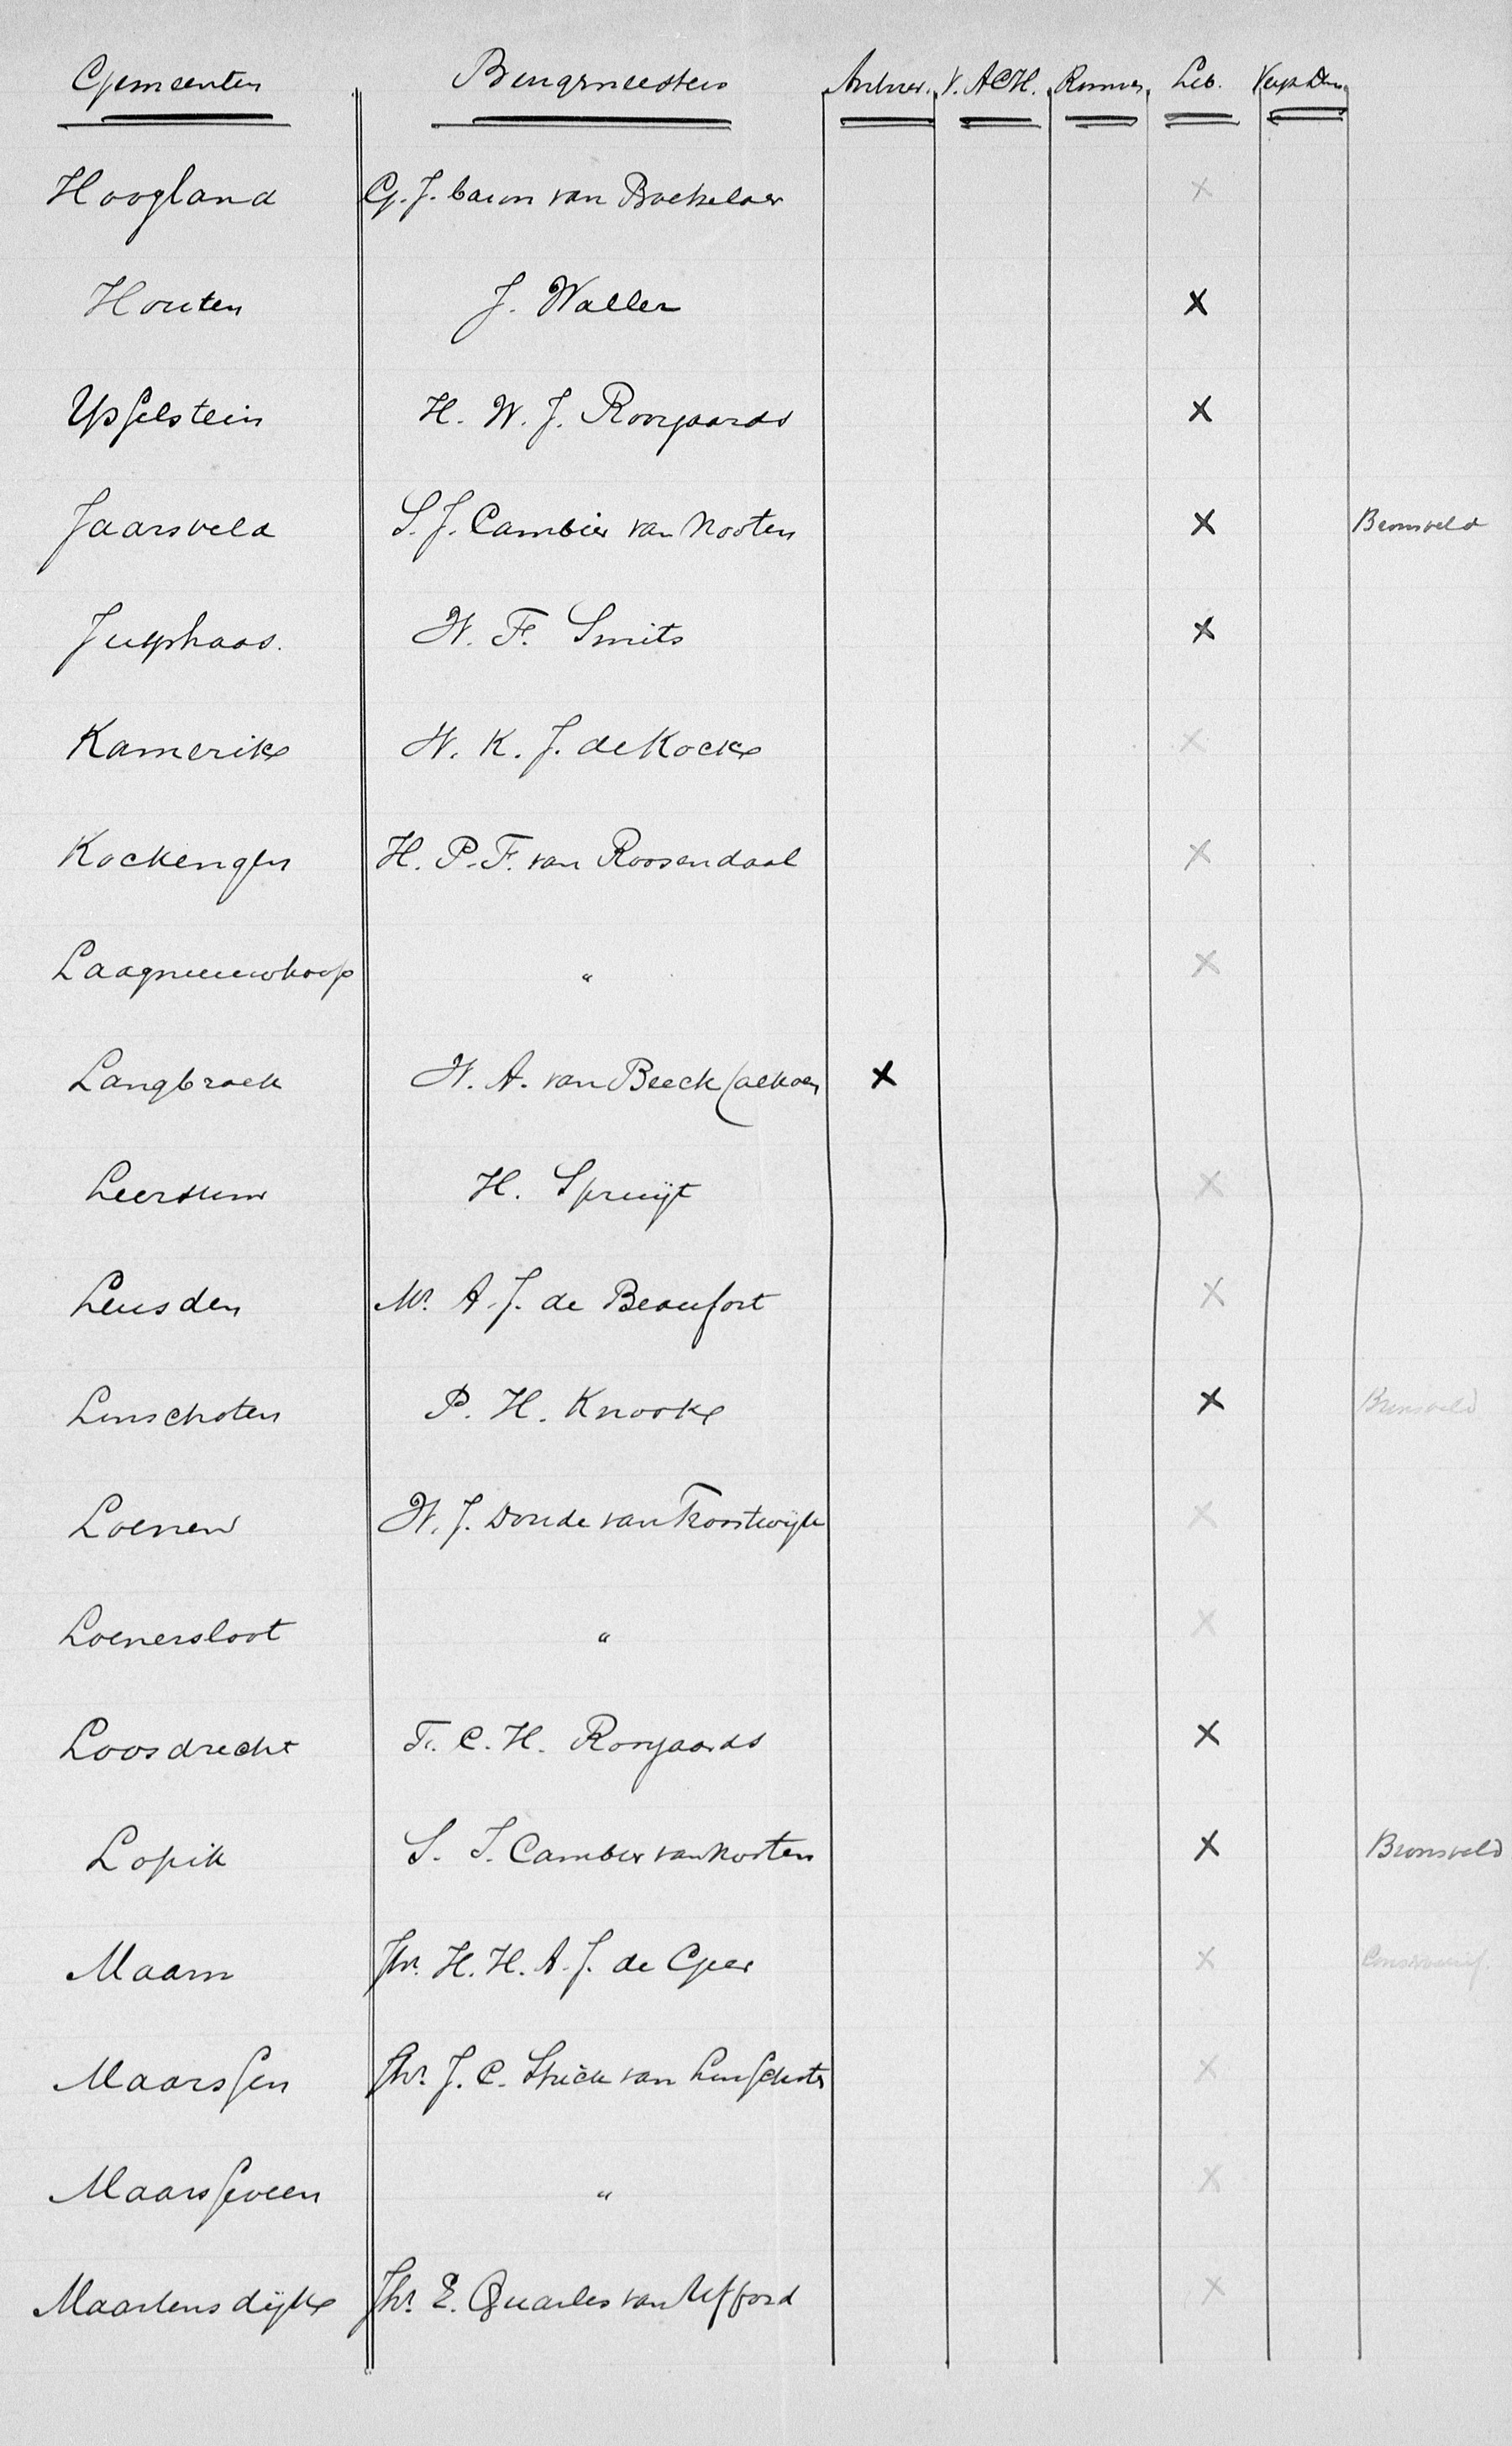 Gemeenten Burgmeesters Antirev. V. ACH. Lib.
Hoogland G. J. baron van Boetzelaer x
Houten J. Waller x
Ysselstein H. W. J. Royaards x
Jaarsveld S. J. Cambier van Nooten x Bronsveld
Jutphaas. W. F. Smits x
Kamerik W. K. J. de Kock x
Kockengen H. P. F. van Roosendaal x
Laagnieuwkoop " x
Langbroek W. A. van Beeck Calkoen x
Leersum H. Spruijt x
Leusden Mr. A. J. de Beaufort x
Linschoten P. H. Knook x Bronsveld
Loenen W. J. Doude van Troostwijk x
Loenersloot " x
Loosdrecht F. C. H. Royaards x
Lopik S. J. Cambier van Nooten x Bronsveld
Maarn Jhr. H. H. A. J. de Geer x
Maarssen Jhr. J. C. Strick van Linschoten x
Maarsseveen " x
Maartensdijk Jhr. E. Quarles van Ufford x